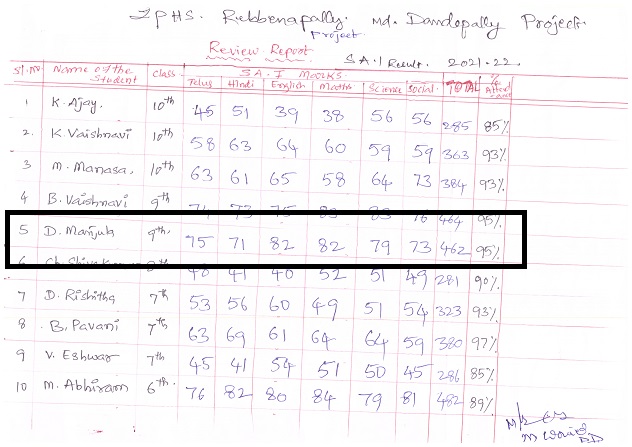 ZPHS. Rebbenapally. Md. Dandepally Project.
Project
Review Report.
S.A.1 Result. 2021-22.
Sl.No Name of the Student Class S.A.I Marks. TOTAL %
Telus Hindi English Maths Science Social.
1 K. Ajay, 10th 45 51 39 38 56 56 285 85%
2. K. Vaishnavi 10th 58 63 64 60 59 59 363 93%
3 M. Manasa, 10th 63 61 65 58 64 73 384 93%
4 B. Vaishnavi 9th 73 75 76 464 95%
5 D. Manjula 9th, 75 71 82 82 79 73 462 95%
6 48 41 40 52 51 49 281 90%
7 D. Rishitha 7th 53 56 60 49 51 54 323 93%
8 B. Pavani 7th 63 69 61 64 64 59 380 97%
9 V. Eshwar 7th 45 41 54 51 50 45 286 85%
10 M. Abhiram 6th. 76 82 80 84 79 81 482 89%